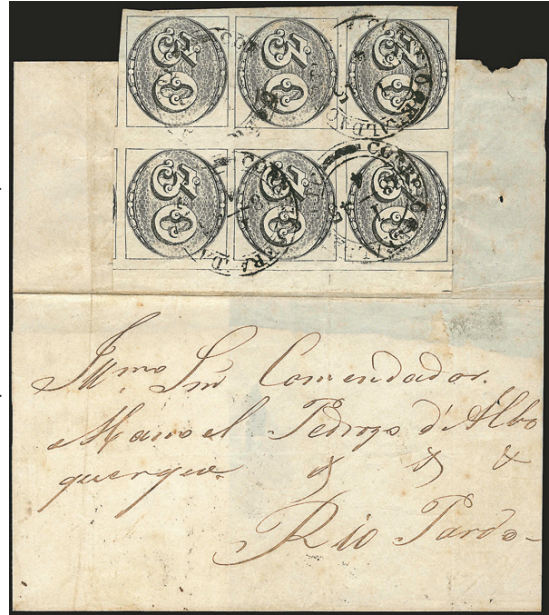 30 30 30
30 30 30
CORREIO
Illmo Snr Comendador.
Manoel Pedrozo d'Albo
querque. & & &
Rio Pardo-